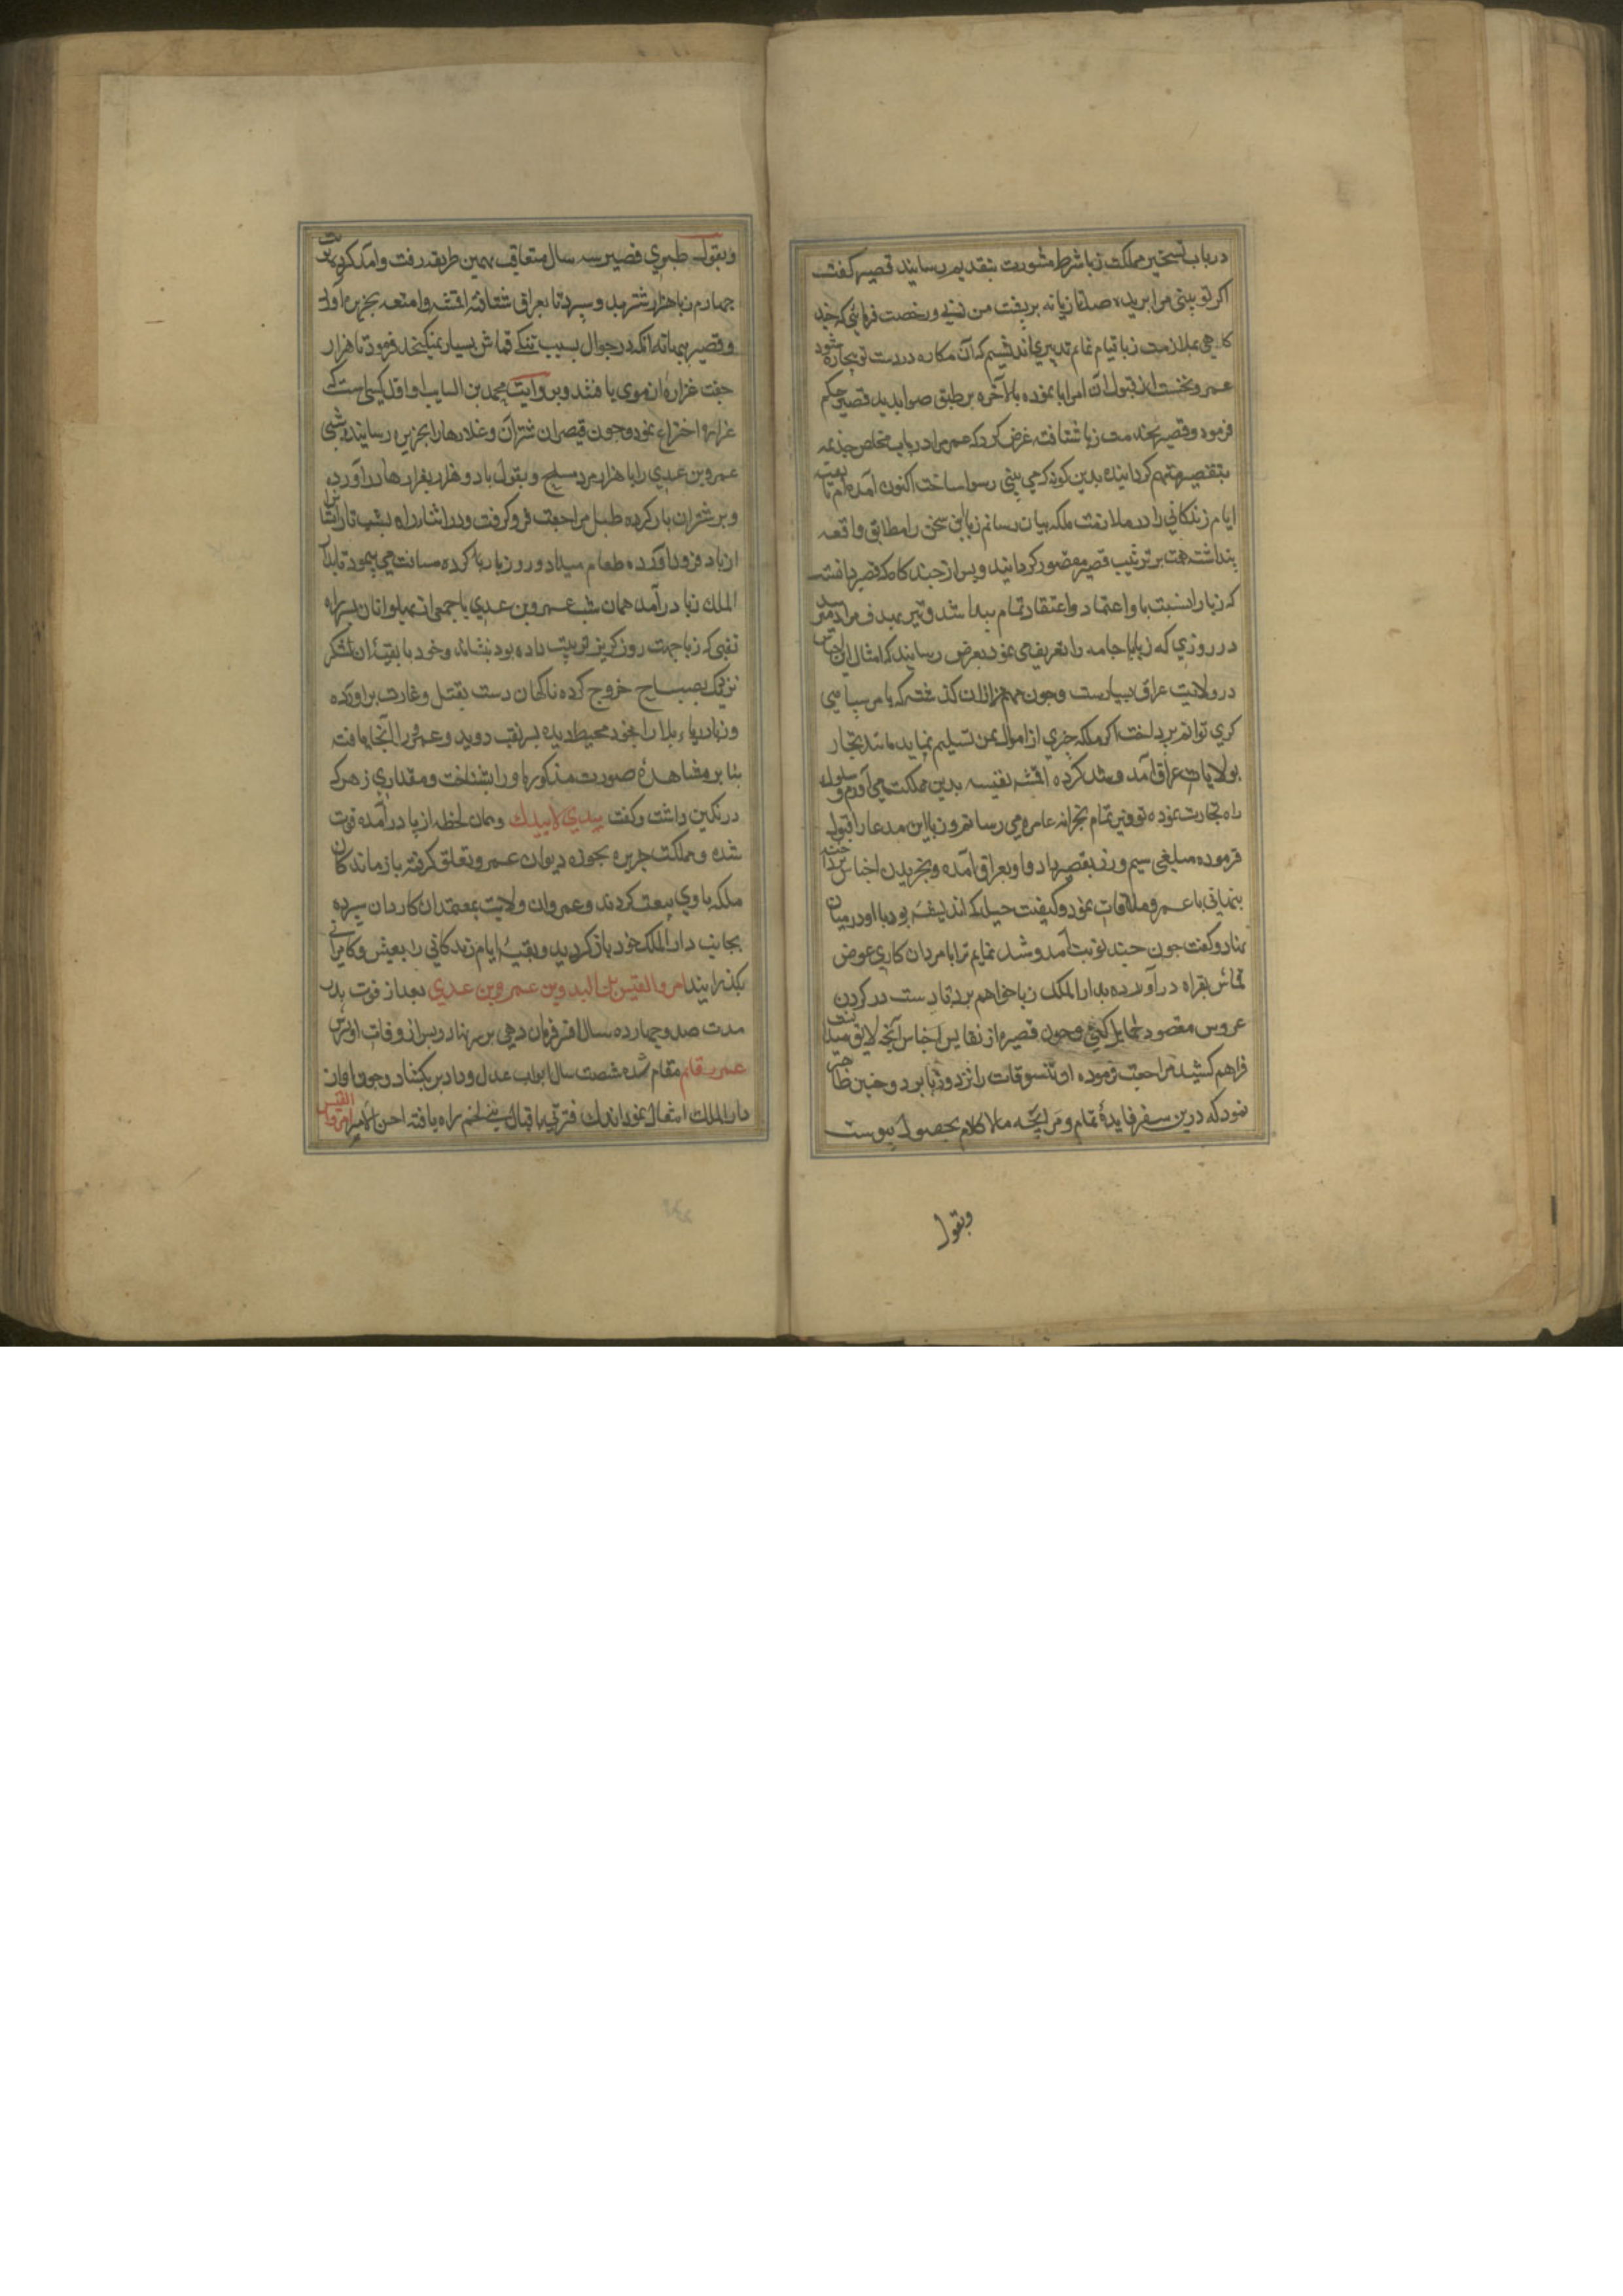 در باب تسخیر مملکت زبا شرط مشورت بتقدیم رسانید قصیر گفت
اگر تو بینی مرا بریده صد تازیانه بر پشت من زنی و رخصت فرمائی که چند
کاهی بملازمت زبا قیام نمایم تدبیری اندیشم که آن مکاره در دست تو بیچاره شود
عمرو نخست از قبول ان امر ابا نموده بالاخره بر طبق صوابدید قصیر حکم
فرمود و قصیر بخدمت زبا شتافته عرض کرد که عمر مرا در باب خلاص جذیمه
بتقصیر متهم کردانیده بدین کونه که می بینی رسوا ساخت اکنون آمده ام تا بقیه
ایام زندکانی را در ملازمت ملکه بپایان رسانم زبا این سخن را مطابق واقعه
پنداشته همت بر تربیت قصیر مقصور کردانید و پس از چند کاه که قصیر دانست
که زبا را نسبت باو اعتماد و اعتقاد تمام پیدا شد و تیر بهدف مراد رسید
در روزی که زبا جامه را تعریف می نمود بعرض رسانید که امثال این اجناس
در ولایت عراق بسیارست و چون مهم از ان کذشته که بامر سپاهی
کری توانم پرداخت اکر ملکه چیزی از اموال بمن تسلیم نماید مانند تجار
بولایات عراق آمد و شد کرده اقمشه نفیسه بدین مملکت می آورم و سلوک
راه تجارت نموده توفیر تمام بخزانه عامره می رسانم و زبا این مدعا را قبول
فرموده مبلغی سیم و زر بقصیر داد و او بعراق آمده و بخریدن اجناس پرداخته
پنهانی با عمرو ملاقات نمود و کیفیت حیله که اندیشه بود با او در میان
نهاد و کفت چون چند نوبت آمد و شد نمایم ترا با مردان کاری عوض
قماش بقراه در آورده بدار الملک زبا خواهم برد تا دست در کردن
عروس مقصود حمایل کنی و چون قصیر از نفایس اجناس آنچه لایق میدانست
فراهم کشید مراجعت فرموده او تنسوقات را نزد زبا برد و چنین ظاهر
نمود که درین سفر فایدهٔ تمام و مرابحه مالا کلام بحصول پیوست
وبقول
وبقول طبری قصیر سه سال متعاقب بهمین طریقه رفت و آمد کرد نوبت
چهارم زبا هزار شتر بدو سپرد تا بعراق شتافته اقمشه و امتعه بجزیره آورد
و قصیر ببهانه انکه در جوال بسبب تنکی قماش بسیار نمیکنجد فرمود تا هزار
جفت غراره از موی بافتند و بروایت محمد بن السایب او اول کسی است که
غراره اختراع نمود و چون قیصر ان شتران و غلارها را بجزیره رسانیده شبی
عمرو بن عدی را با هزار مرد مسلح و بقول با دو هزار بغرارها در آورد
و بر شتران بار کرده طبل مراجعت فرو کوفت و در اثناء راه بشب تار ایشان را
از بار فرود آورده طعام میداد و روز بار بار کرده مسافت می پیمود تا بدار
الملک زبا در آمد همان شب عمرو بن عدی با جمعی از پهلوانان بر سر راه
نقبی که زبا جهت روز کریز ترتیب داده بود بنشاند و خود با بقیهٔ ان لشکر
نزدیک بصباح خروج کرده ناکهان دست بقتل و غارت بر آورده
و زبا دریاء بلا را بخود محیط دیده بسر نقب دوید و عمرو را آنجا یافته
بنا بر مشاهدهٔ صورت مذکوره او را بشناخت و مقداری زهر که
در نکین داشت و کفت بیدی لا بیدک و همان لحظه از پا در آمده فوت
شده و مملکت جزیره بحوزه دیوان عمرو تعلق کرفته بازماندکان
ملکه با وی بیعت کردند و عمرو ان ولایت بمعتمدان کاردان سپرده
بجانب دار الملک خود باز کردید و بقیهٔ ایام زندکانی را بعیش و کامرانی
بکذرانید امرو القیس بن البدو بن عمرو بن عدی بعد از فوت پدر
مدت صد و چهارده سال افسر فرمان دهی بر سر نهاد و پس از وفات او پسرش
عمر بقایم مقام شده شصت سال ابواب عدل و داد بر بکشاد و چون او از
دار الملک انتقال نمود اندک فترتی باقبال بنی لخم راه یافته احر الامر امرو القیس